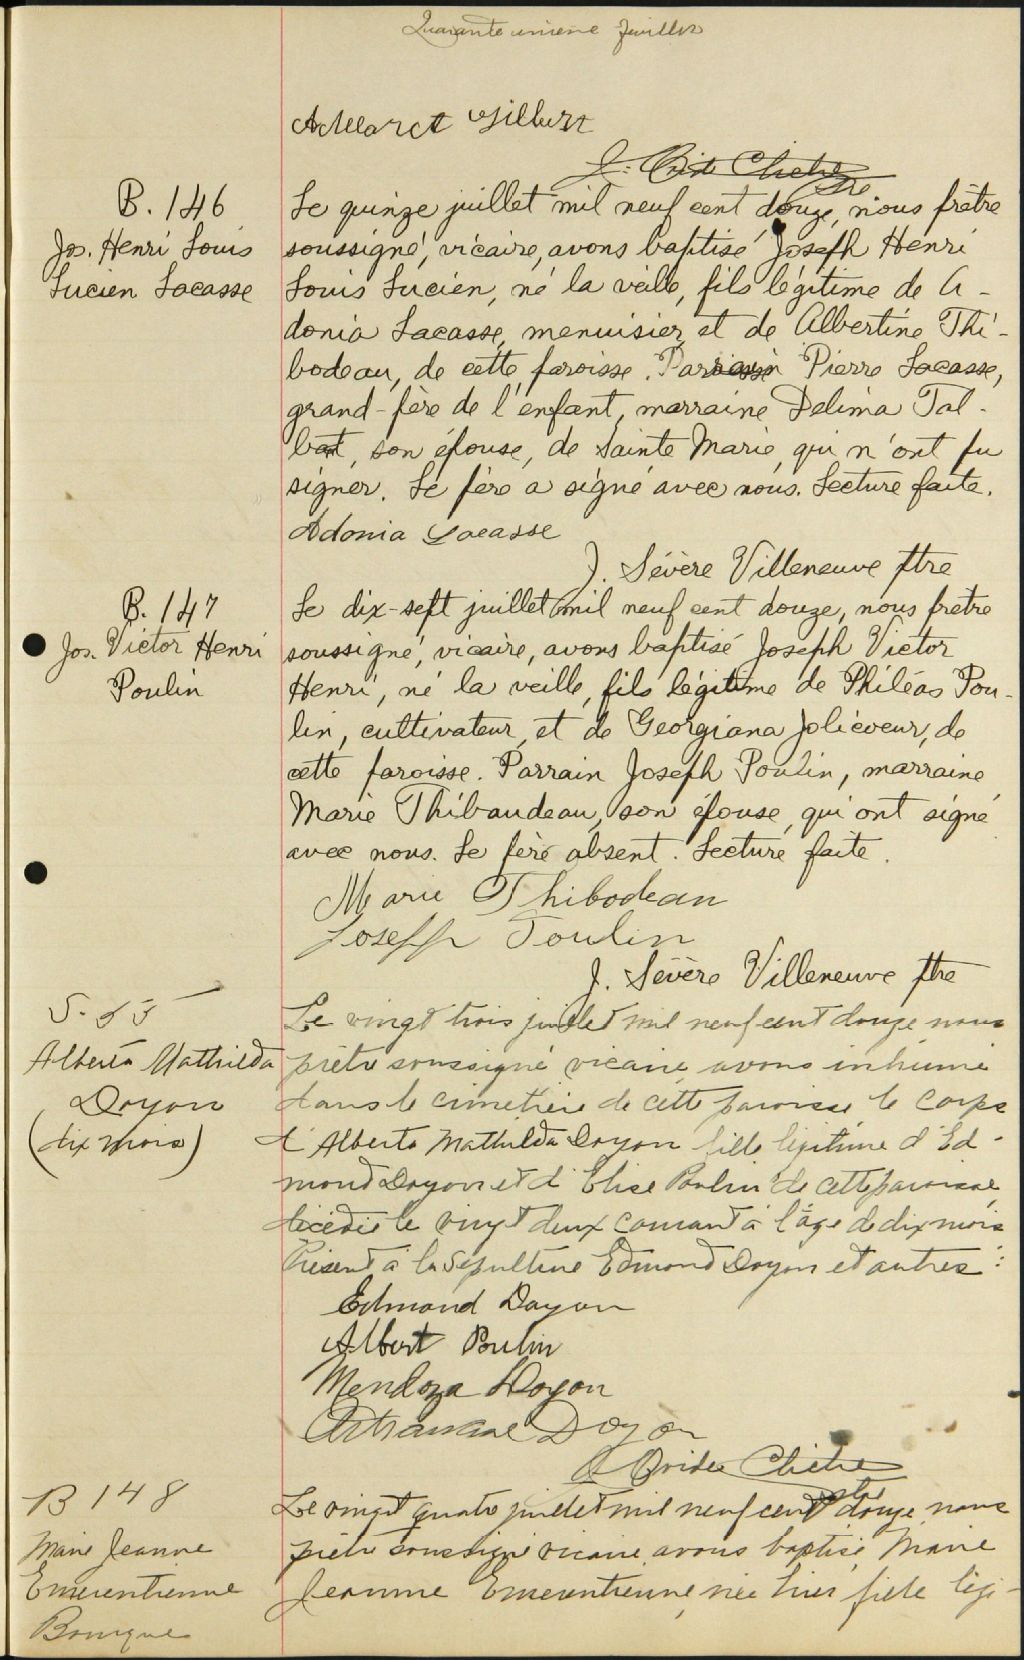 Quarante unième feuillet
Gilbert
Cliche
ptre
B. 146
Jos. Henri Louis
Lucien Lacasse
Le quinze juillet mil neuf cent douze, nous prêtre
soussigné, vicaire, avons baptisé Joseph Henri
Louis Lucien, né la veille, fils légitime de A-
donia Lacasse, menuisier, et de Albertine Thi-
bodeau, de cette paroisse. Parrain Pierre Lacasse,
grand-père de l'enfant, marraine Delima Tal-
bot, son épouse, de Sainte Marie, qui n'ont pu
signer. Le père a signé avec nous. Lecture faite.
Adonia Lacasse
J. Sévère Villeneuve ptre
B. 147
Jos. Victor Henri
Poulin
Le dix-sept juillet mil neuf cent douze, nous prêtre
soussigné, vicaire, avons baptisé Joseph Victor
Henri, né la veille, fils légitime de Philéas Pou-
lin, cultivateur, et de Georgiana Jolicoeur, de
cette paroisse. Parrain Joseph Poulin, marraine
Marie Thibaudeau, son épouse, qui ont signé
avec nous. Le père absent. Lecture faite.
Marie Thibodeau
Joseph Poulin
J. Sévère Villeneuve ptre
S.
Alberta Mathilda
Doyon
(dix mois)
Le vingt trois juillet mil neuf cent douze nous
prêtre soussigné vicaire, avons inhumé
dans le cimetière de cette paroisse le corps
d'Alberta Mathilda Doyon fille légitime d'Ed-
mond Doyon et d'Elise Poulin de cette paroisse,
décédée le vingt deux courant à l'âge de dix mois
Présent à la sépulture Edmond Doyon et autres:
Edmond Doyon
Albert Poulin
Mendoza Doyon
Doyon
Cliche
ptre
B 148
Marie Jeanne
Emerentienne
Le vingt quatre juillet mil neuf cent douze nous
prêtre soussigné vicaire avons baptisé Marie
Jeanne Emerentienne, née hier fille légi-